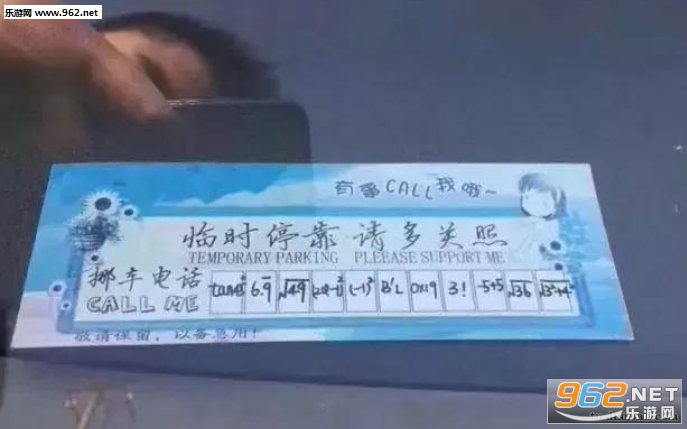 乐游网
www.962.net
有事CALL我哦~
临时停靠 请多关照
TEMPORARY PARKING PLEEASE SUPPORT ME
挪车电话 tan45° 6.9̄ √49 (-1)² 0X19 3! -5+5 √36
CALL ME
敬请保留，以备急用！
962.NET
乐游网